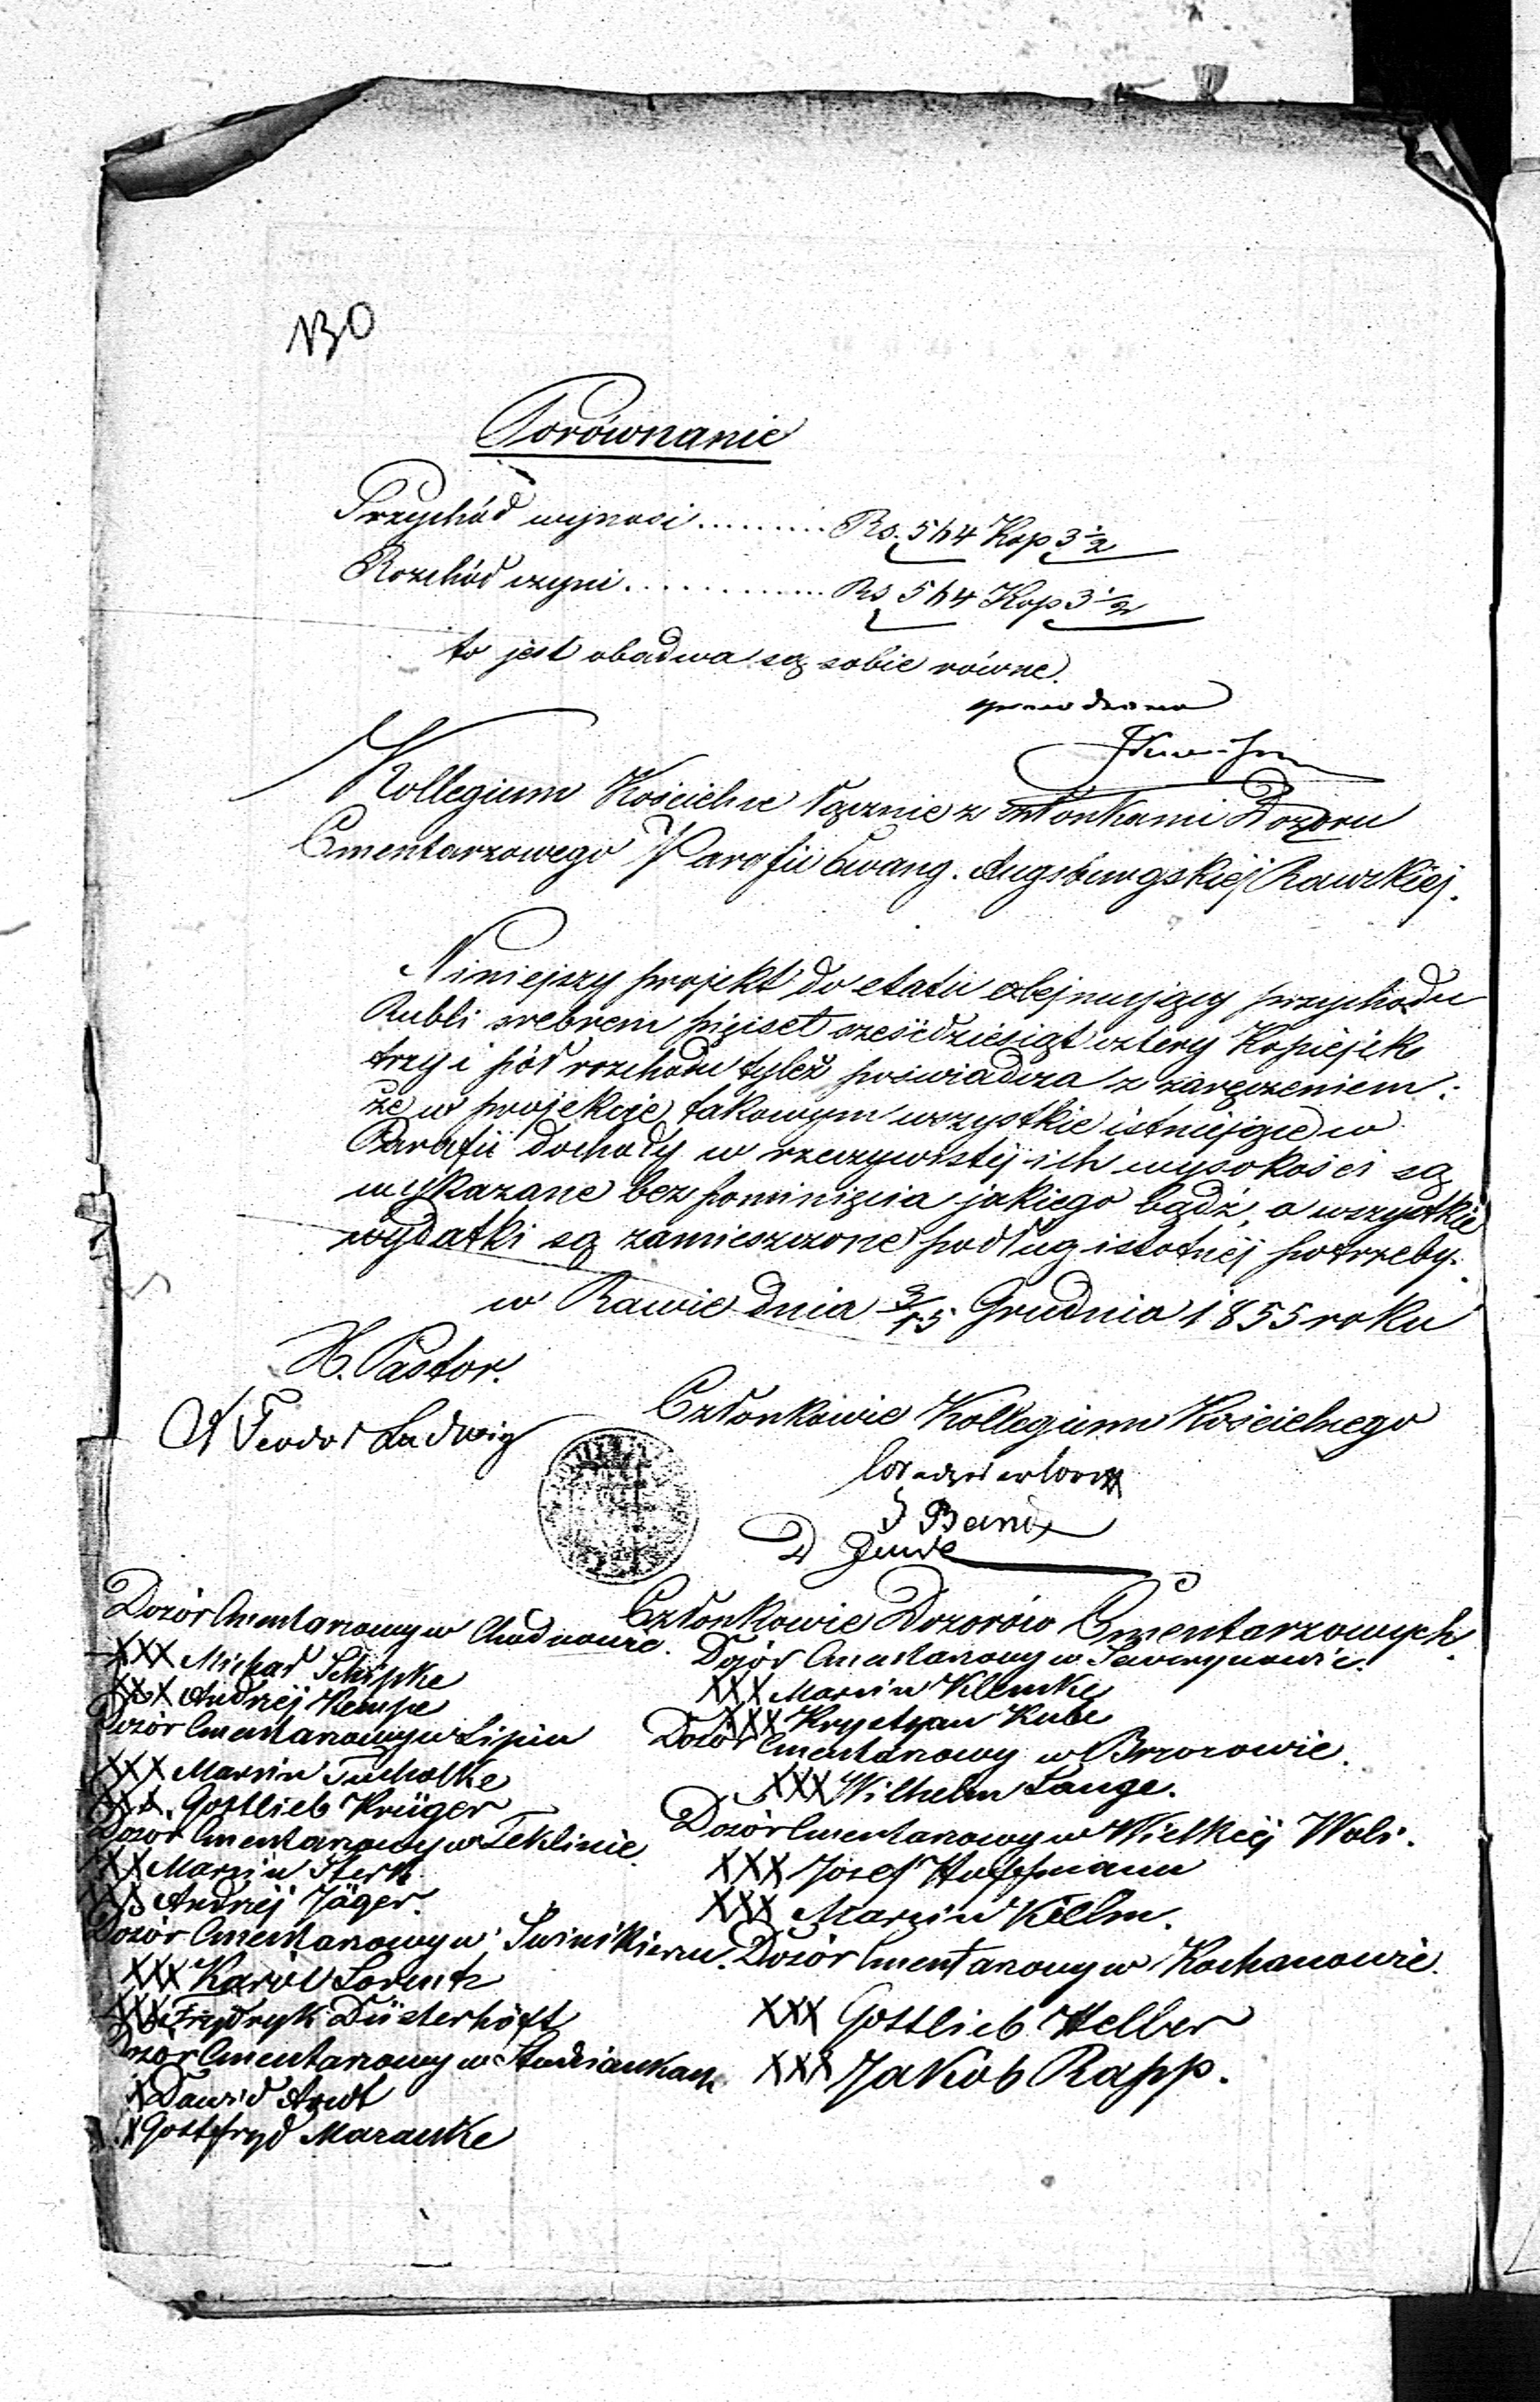 130
Porównanie
Przychód wynosi ......... Rs. 564 Kop 3 1/2
Rozchód czyni ............. Rs 564 Kop 3 1/2
to jest obadwa są sobie równe.
Kollegium Kościelne łącznie z członkami Dozoru
Cmentarzowego Parafii Ewang. Augsburgskiej Rawskiej.
Niniejszy projekt do etatu obejmujący przychodu
Rubli srebrem pięćset sześćdziesiąt cztery Kopiejek
trzy i pół rozchodu tyleż poświadcza z zaręczeniem:
że w projekcie takowym wszystkie istniejące w
Parafii dochody w rzeczywistéj ich wysokości są
wykazane bez pominięcia jakiego bądź, a wszystkie
wydatki są zamieszczone podług istotnéj potrzeby.
w Rawie dnia 3/15 Grudnia 1855 roku
X. Pastor.
Teodor Ludwig
Członkowie Kollegium Kościelnego
Członkowie Dozorów Cmentarzowych.
Dozór Cmentarzowy w Chudnowie.
XXX Michał Schipke
XXX Andrzéj Hempe
Dozór Cmentarzowy w Lipiu
XXX Marcin Tucholke
XXX Gottlieb Krüger
Dozór Cmentarzowy w Teklinie.
XXX Marcin Sterk
XXX Andrzéj Jäger.
Dozór Cmentarzowy w
XXX Karol Lorentz
XXX Frydryk Düsterhöft
Dozór Cmentarzowy w Studziankach
X Dawid Arndt
X Gottfryd Maranke
Dozór Cmentarzowy w
XXX Marcin Klemke
XXX Krystyan Kube
Dozór Cmentarzowy w Brzozowie.
XXX Wilhelm Lange.
Dozór Cmentarzowy w Wielkiéj Woli.
XXX Jozef Huffmann
XXX Marcin Kelm.
Dozór Cmentarzowy w Kochanowie.
XXX Gottlieb Helber
XXX Jakób Rapp.